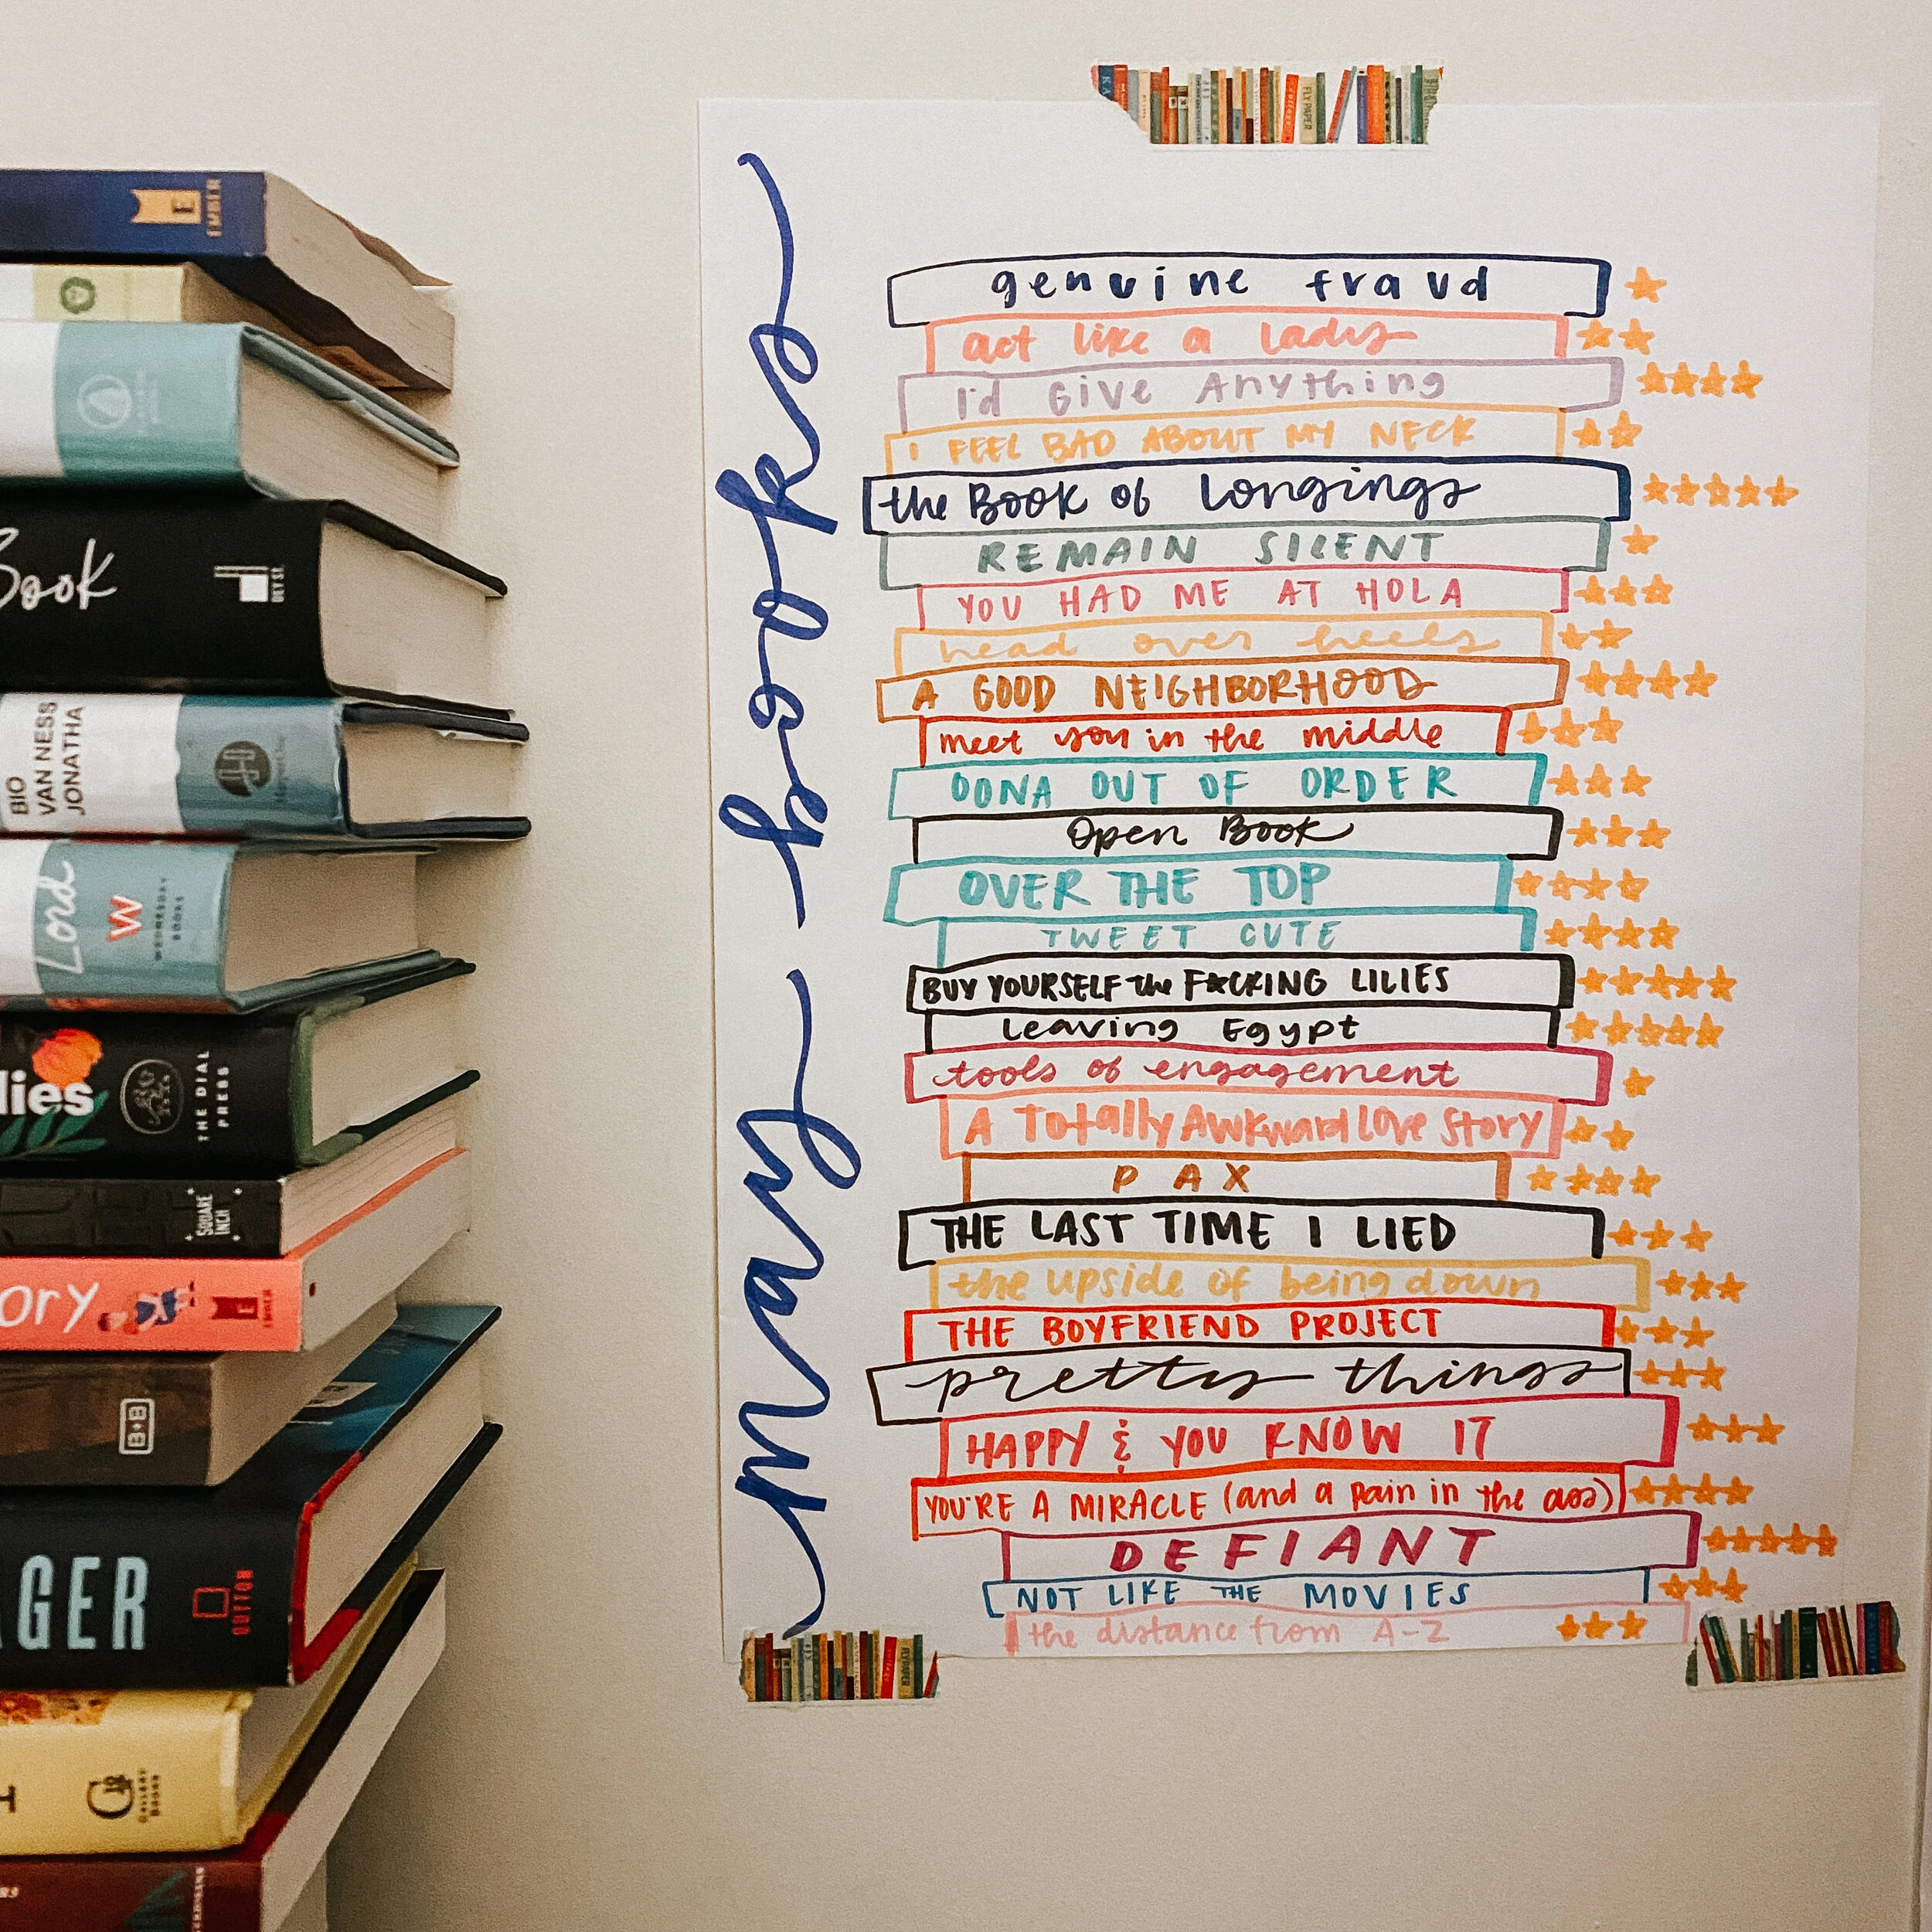 EMBER
Book
DEY ST.
BIO
VAN NESS
JONATHA
Lord
W
WEDNESDAY
BOOKS
lies
THE DIAL
PRESS
SQUARE
INCH
ORY
E
B+B
GER
DUTTON
G
GALLERY
BOOKS
may books
genuine fraud
act like a lady
I'd Give Anything
I FEEL BAD ABOUT MY NECK
the Book of Longings
REMAIN SILENT
YOU HAD ME AT HOLA
head over heels
A GOOD NEIGHBORHOOD
meet you in the middle
OONA OUT OF ORDER
Open Book
OVER THE TOP
TWEET CUTE
BUY YOURSELF the F*CKING LILIES
Leaving Egypt
tools of engagement
A Totally Awkward Love Story
PAX
THE LAST TIME I LIED
the upside of being down
THE BOYFRIEND PROJECT
pretty things
HAPPY & YOU KNOW IT
YOU'RE A MIRACLE (and a pain in the ass)
DEFIANT
NOT LIKE THE MOVIES
the distance from A-Z